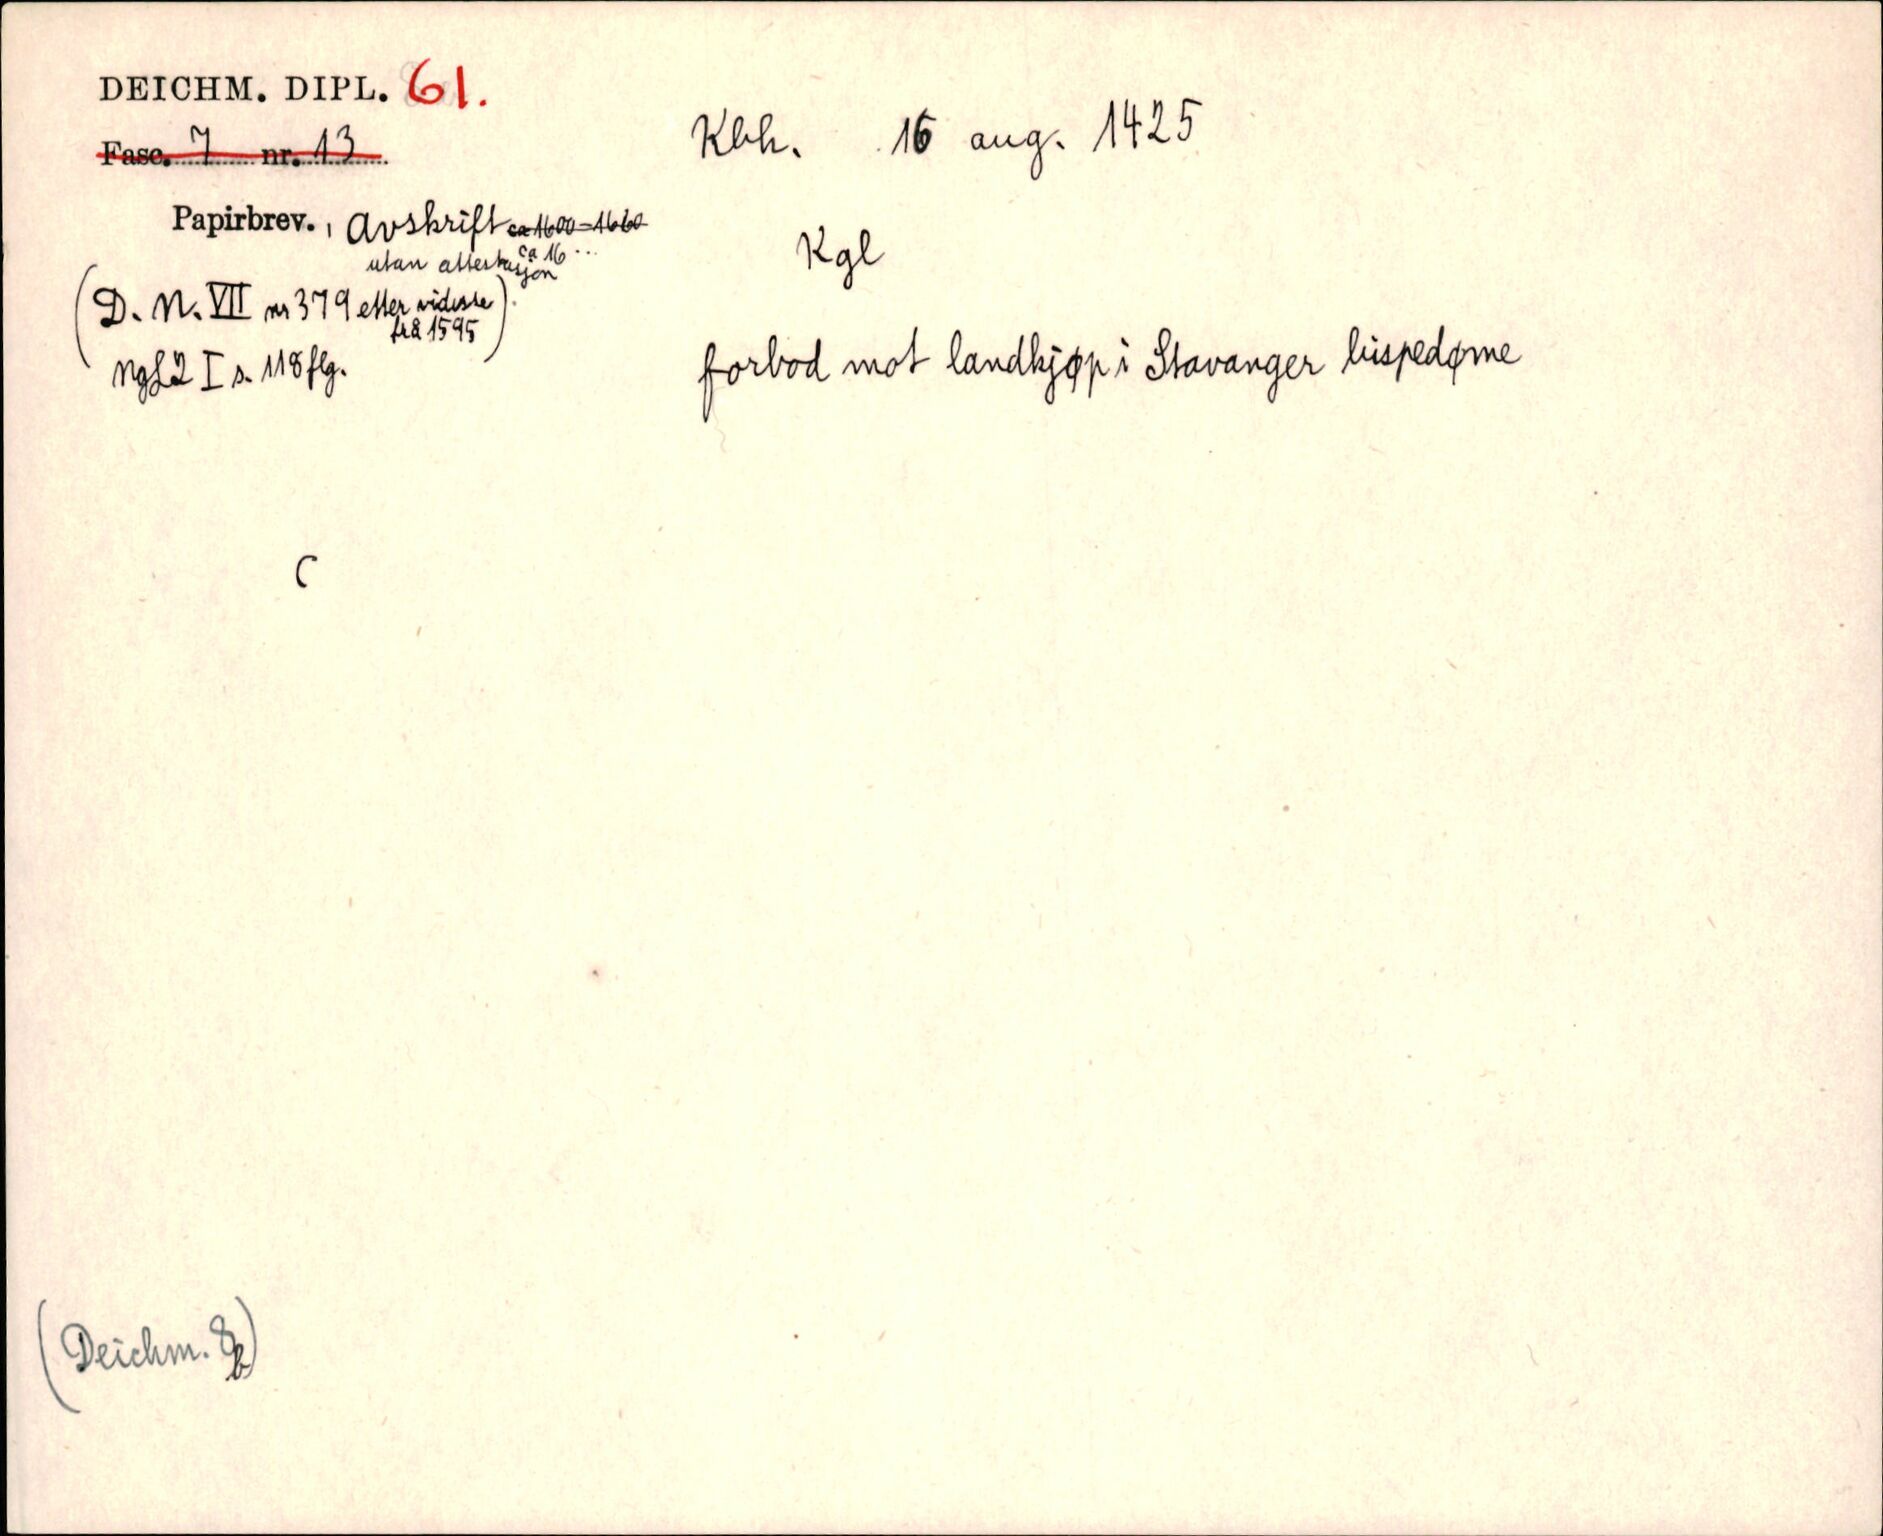 DEICHM. DIPL. 61.
Fasc. 7 nr. 13
Kbh. 16 aug. 1425
Papirbrev., Avskrift ca 1600-1660
ca 16...
utan attestasjon
Kgl
(D. N. VII nr 379 etter vidisse
frå 1595)
NgL2 I s. 118 flg.
forbod mot landkjøp i Stavanger bispedøme
C
(Deichm. 8b)